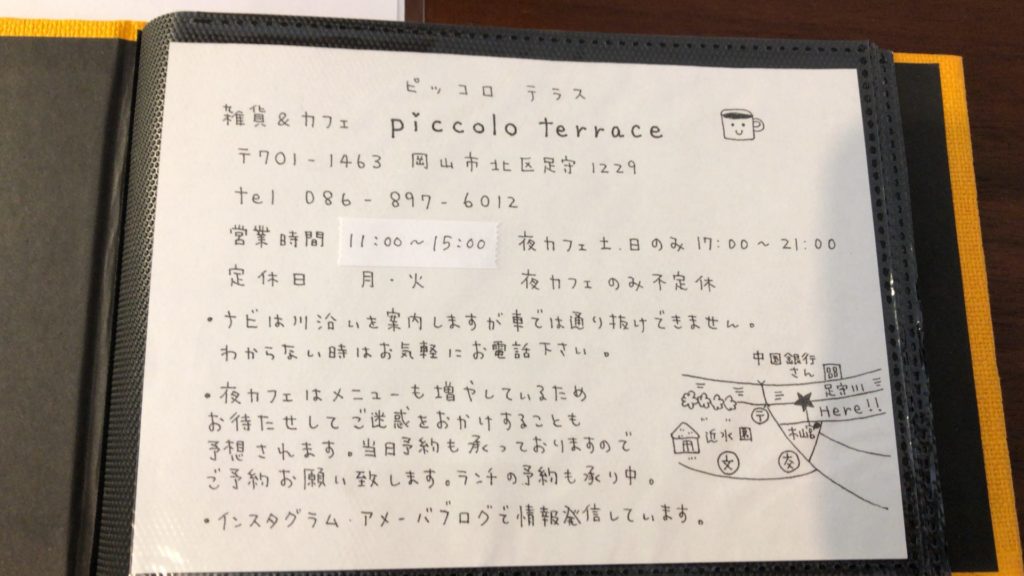 ピッコロ テラス
雑貨&カフェ piccolo terrace
〒701-1463 岡山市北区足守1229
tel 086-897-6012
営業時間 11:00~15:00 夜カフェ土.日のみ17:00~21:00
定休日 月・火 夜カフェのみ不定休
・ナビは川沿いを案内しますが車では通り抜けできません。
わからない時はお気軽にお電話下さい。
・夜カフェはメニューも増やしているため
お待たせしてご迷惑をおかけすることも
予想されます。当日予約も承っておりますので
ご予約お願い致します。ランチの予約も承り中。
・インスタグラム・アメーバブログで情報発信しています。
中国銀行
さん
足守川
Here!!
〒
近水園
文